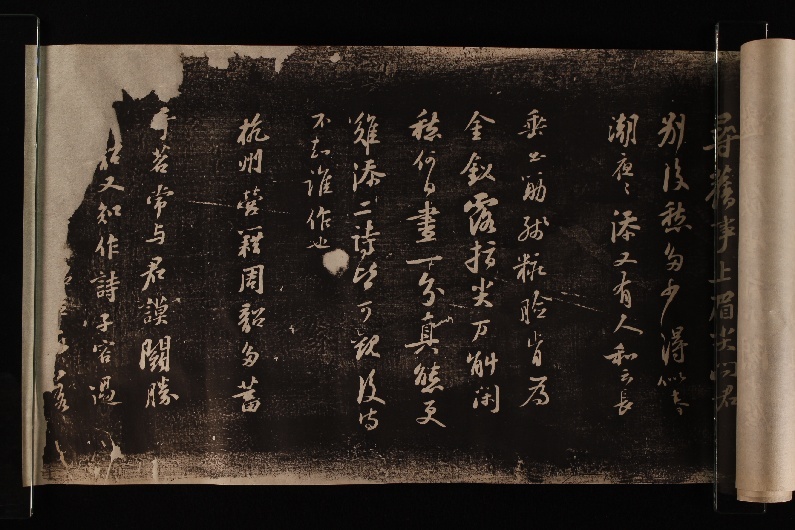 尋舊事上眉尖問君
別後愁多少得似春
潮夜〻添又有人和云長
垂玉筯殘粧臉肯為
金釵露指尖万斛閑
愁何日盡一分真態更
難添二詩皆可觀後詩
不知誰作也
杭州營籍周韶多蓄
奇茗常与君謨鬭勝
韶又知作詩子容過